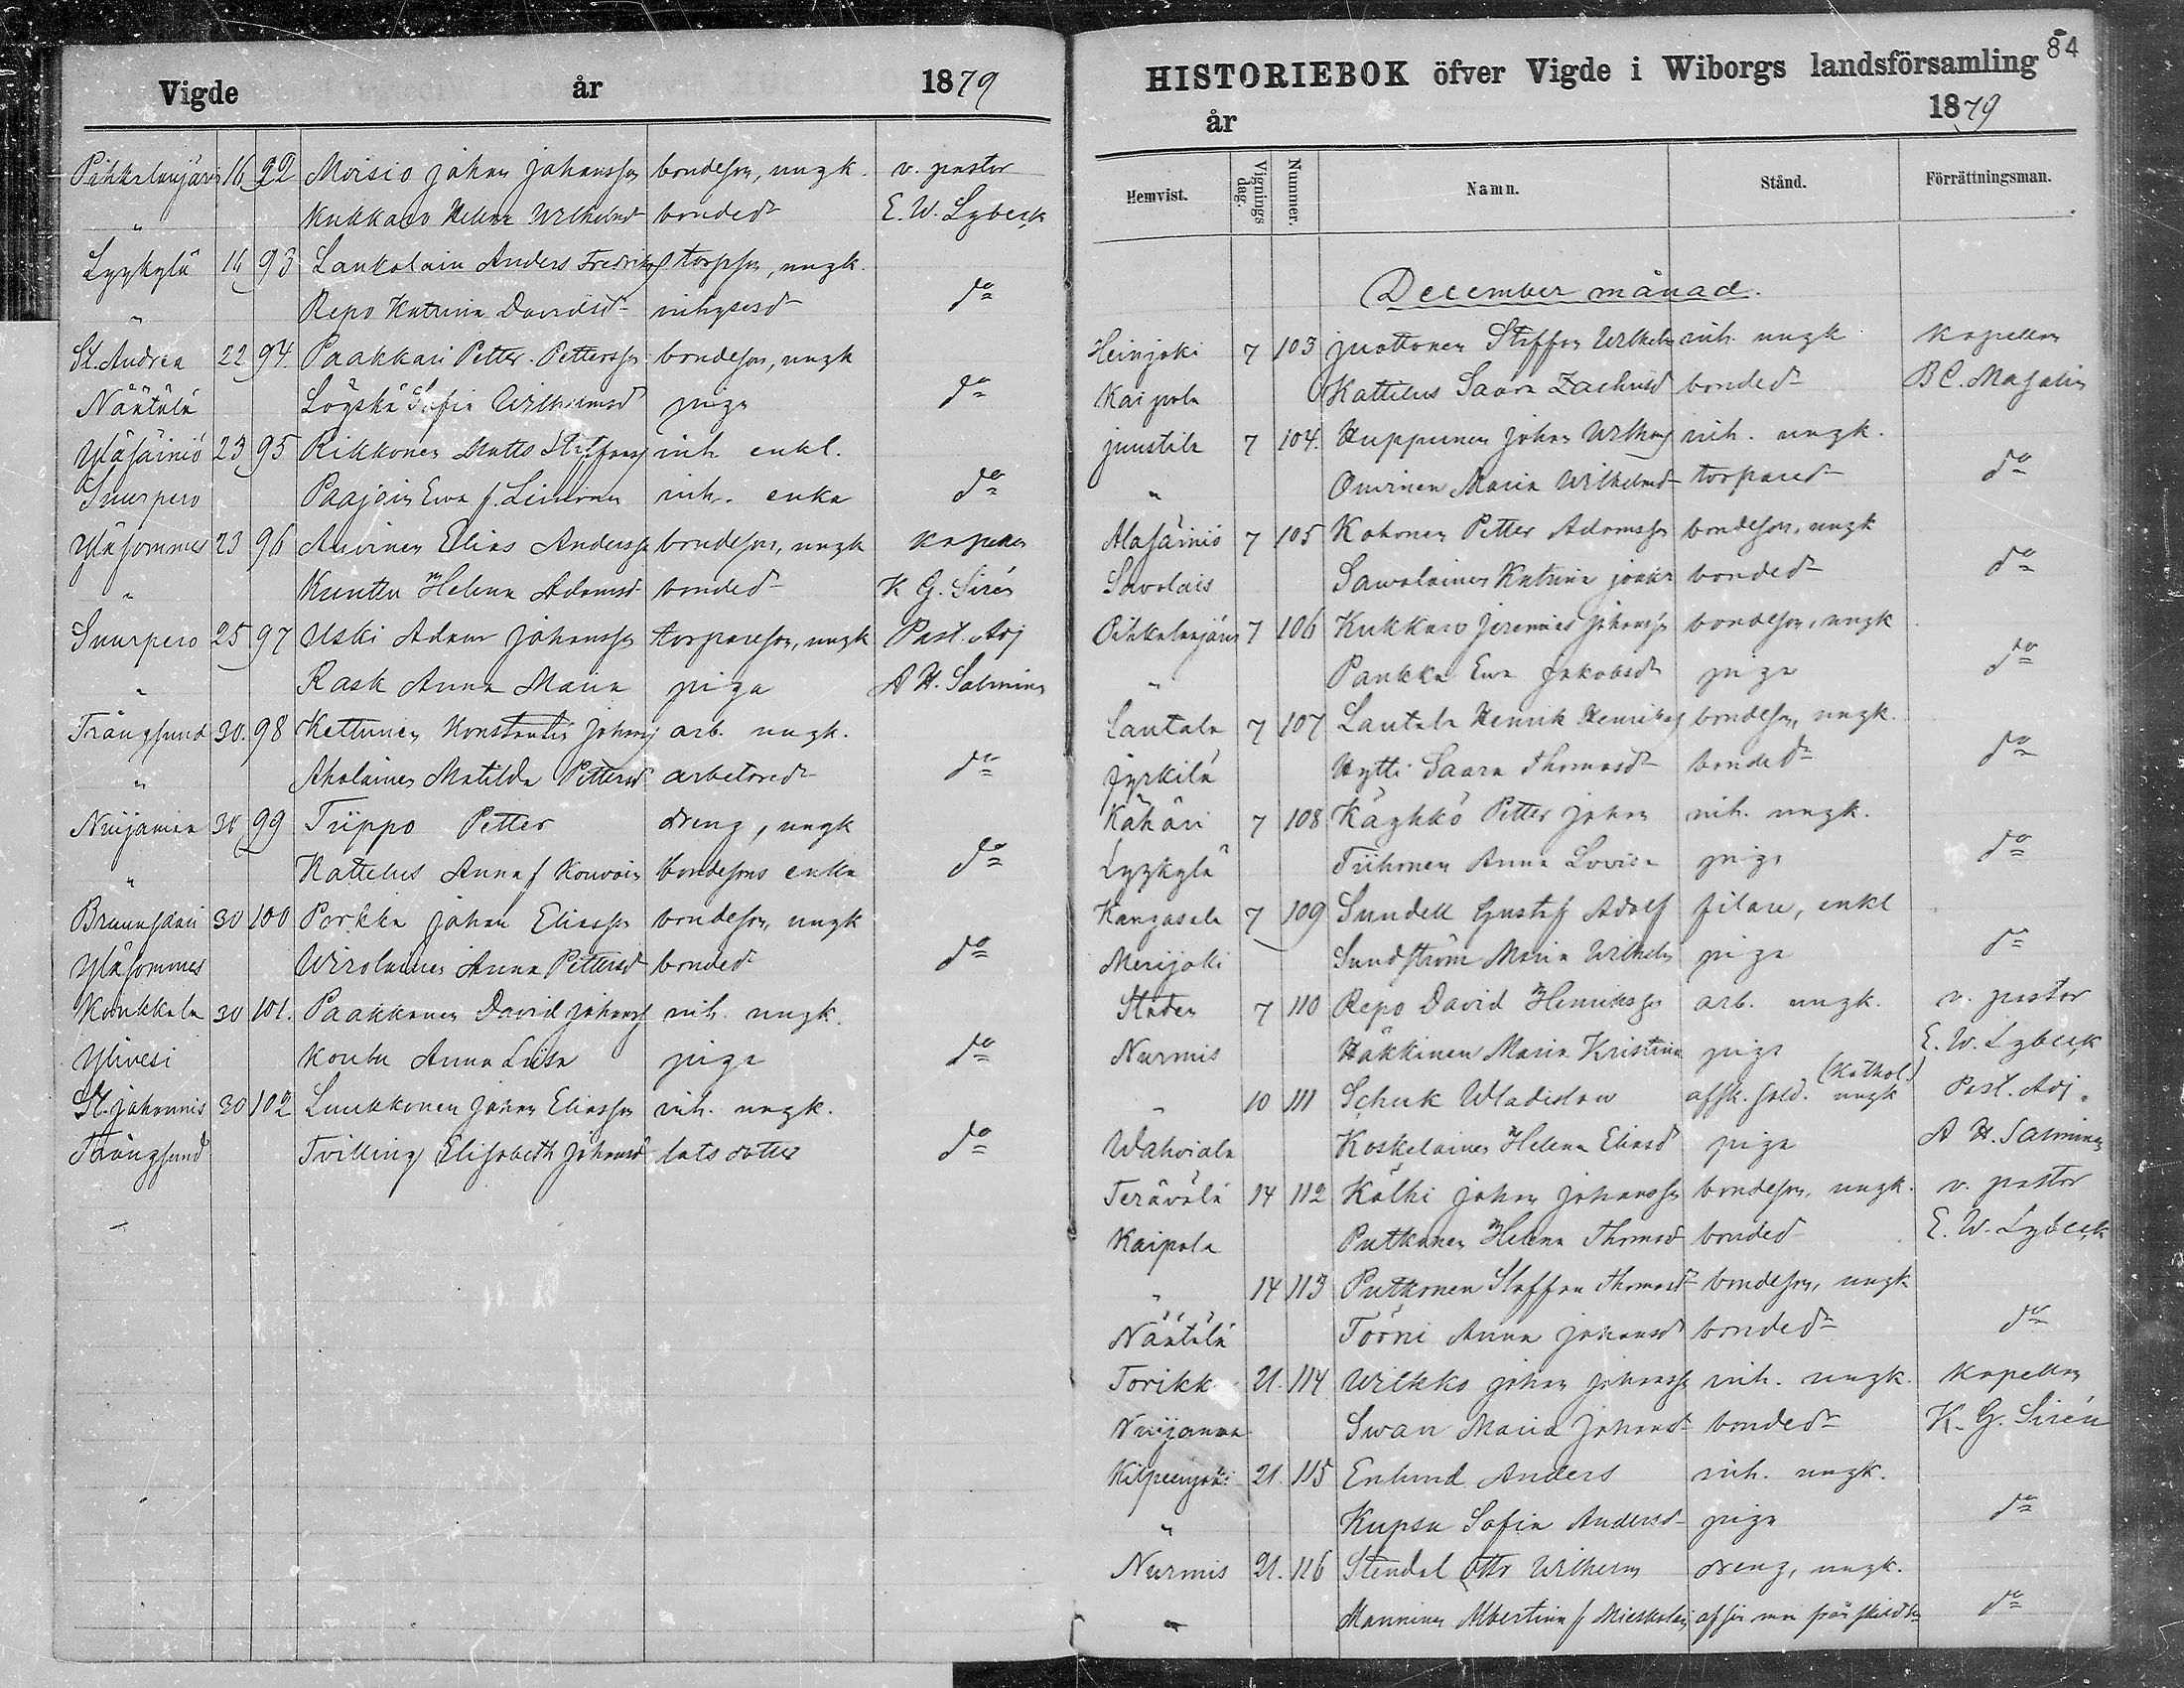 Vigde år 1879
Pihkalanjärvi 16 92 Moisio Johan Johansson bondeson, ungk. v. pastor
" Kukkaro Helena Wilhelmsd bonded E. W. Lybeck
Lyykylä 16 93 Lankolain Anders Fredriks torpson, ungk.
" Repo Katrina Davidsd inhysesd do
St. Andrea 22 94. Paakkari Petter Pettersson bondeson, ungk
Näätälä Sofia Wilhelmsd piga do
Yläsäiniö 23 95 Rikkonen Matts Staffans inh enkl.
Suurpero Paajoin Ewa f. inh. enka do
Yläsommes 23 96 Auvinen Elias Andersson bondeson, ungk kapellan
" Kunttu Helena Adamsd bonded K G. Sirén
Suurpero 25 97 Uski Adam Johansson torpareson, ungk Past. Adj
" Rask Anna Maria piga A H. Salminen
Trångsund 30. 98 Kettunen Konstantin Johans arb. ungk.
" Aholainen Matilda Pettersd arbetared do
Nuijamaa 30 99 Tiippo Petter dreng, ungk
" Kattelus Anna f Kouvoin bondesons enka do
Brunnsdari 30 100 Porkka Johan Eliasson bondeson, ungk
Yläsommes Wirolainen Anna Pettersd bonded do
Konkkala 30 101. Paakkonen David Johanss inh. ungk.
Ylivesi Anna Luisa piga do
St. Johannis 30 102 Luukkonen Johan Eliasson inh. ungk.
Trångsund Tvilling Elisabeth Johansd lots dotter do
HISTORIEBOK öfver Vigde i Wiborgs landsförsamling 84
år 1879
Hemvist. Vignings dag. Nummer. Namn. Stånd. Förrättningsman.
December månad.
Heinjoki 7 103 Juottonen Staffan Wilhelm inh. ungk kapellan
Kaipola Kattelus Saara Zachrisd bonded B C.
Juustila 7 104. Huppunen Johan Wilhelms inh. ungk.
" Onvinen Maria Wilhelmsd torpared do
Alasäiniö 7 105 Kohonen Petter Adamsson bondeson, ungk
Savolais Sawolainen Katrina bonded do
Pihkalanjärvi 7 106 Kukkaro Jeremias Johansson bondeson, ungk
" Pankka Ewa Jakobsd piga do
Lantala 7 107 Lautala Henrik Henriks bondeson, ungk.
Jyrkilä Hytti Saara Thomasd bonded do
Kähäri 7 108 Käghkö Petter Johan inh. ungk.
Lyykylä Tiihonen Anna Lovisa piga do
Kangasala 7 109 Sundell Gustaf Adolf filare, enkl
Merijoki Sundström Maria Wilhelm piga do
Staden 7 110 Repo David Henriksson arb. ungk. v. pastor
Nurmis Häkkinen Maria Kristina piga E. W. Lybeck
" 10 111 Schuk Wladislaw afsk. sold. ungk (Kathol.) Past. Adj.
Wahviala Koskelainen Helena Eliasd piga A H. Salminen
Terävälä 14 112 Kälki Johan Johansson bondeson, ungk. v. pastor
Kaipola Putkonen Helena Thomasd bonded E. W. Lybeck
" 14 113 Putkonen Staffan Thomasd bondeson, ungk
Näätälä Törni Anna Johansd bonded do
Torikk 21. 114 Wilkko Johan Johansson inh. ungk. kapellan
Nuijamaa Swan Maria Johansd bonded K. G. Sirén
Kilpeenjoki 21. 115 Enlund Anders inh. ungk.
" Kupsa Sofia Andersd piga do
Nurmis 21. 116 Stendal Otto Wilhelm dreng, ungk.
" Manninen Albertina f do